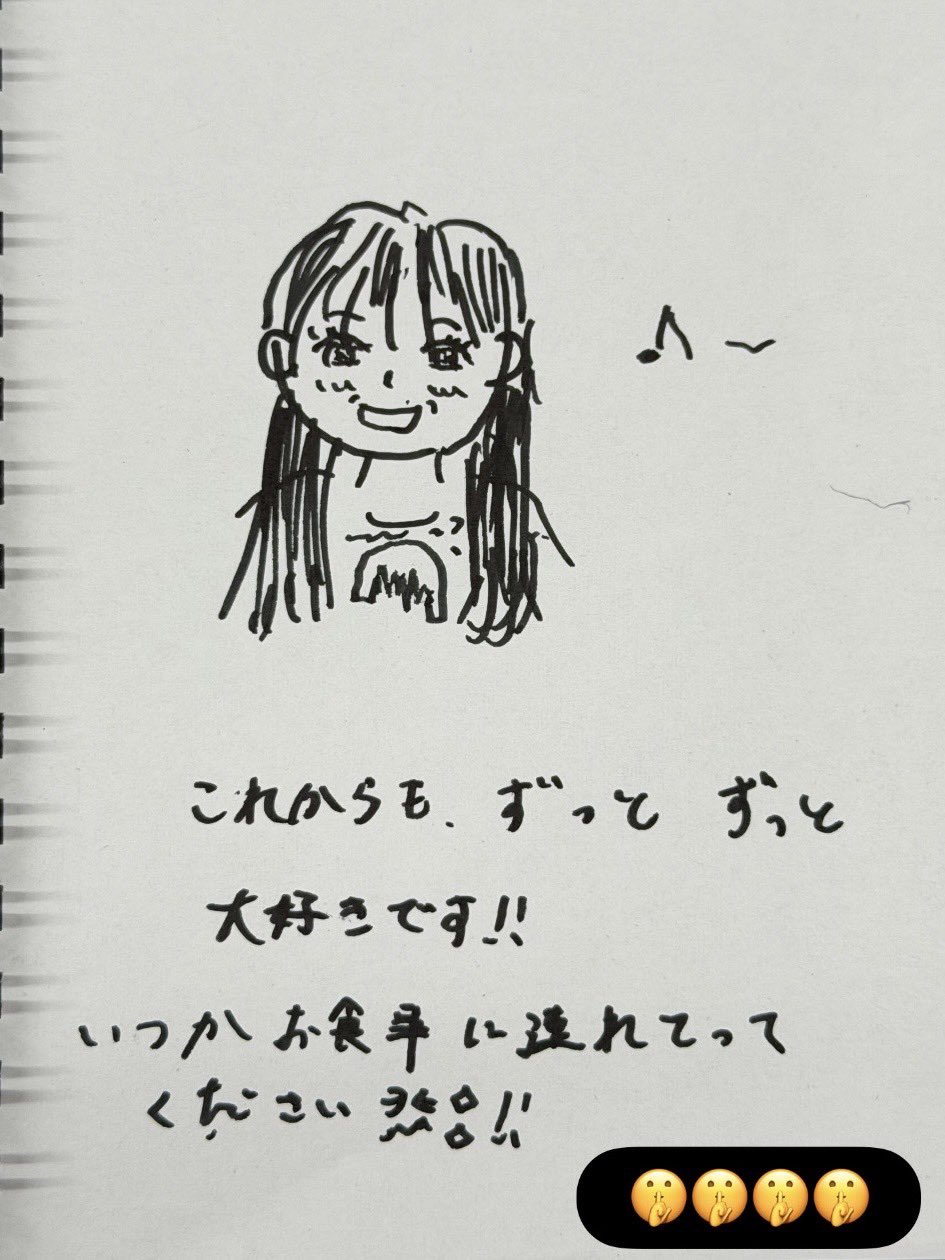 これからも、ずっと ずっと
大好きです!!
いつか お食事に連れてって
ください !!